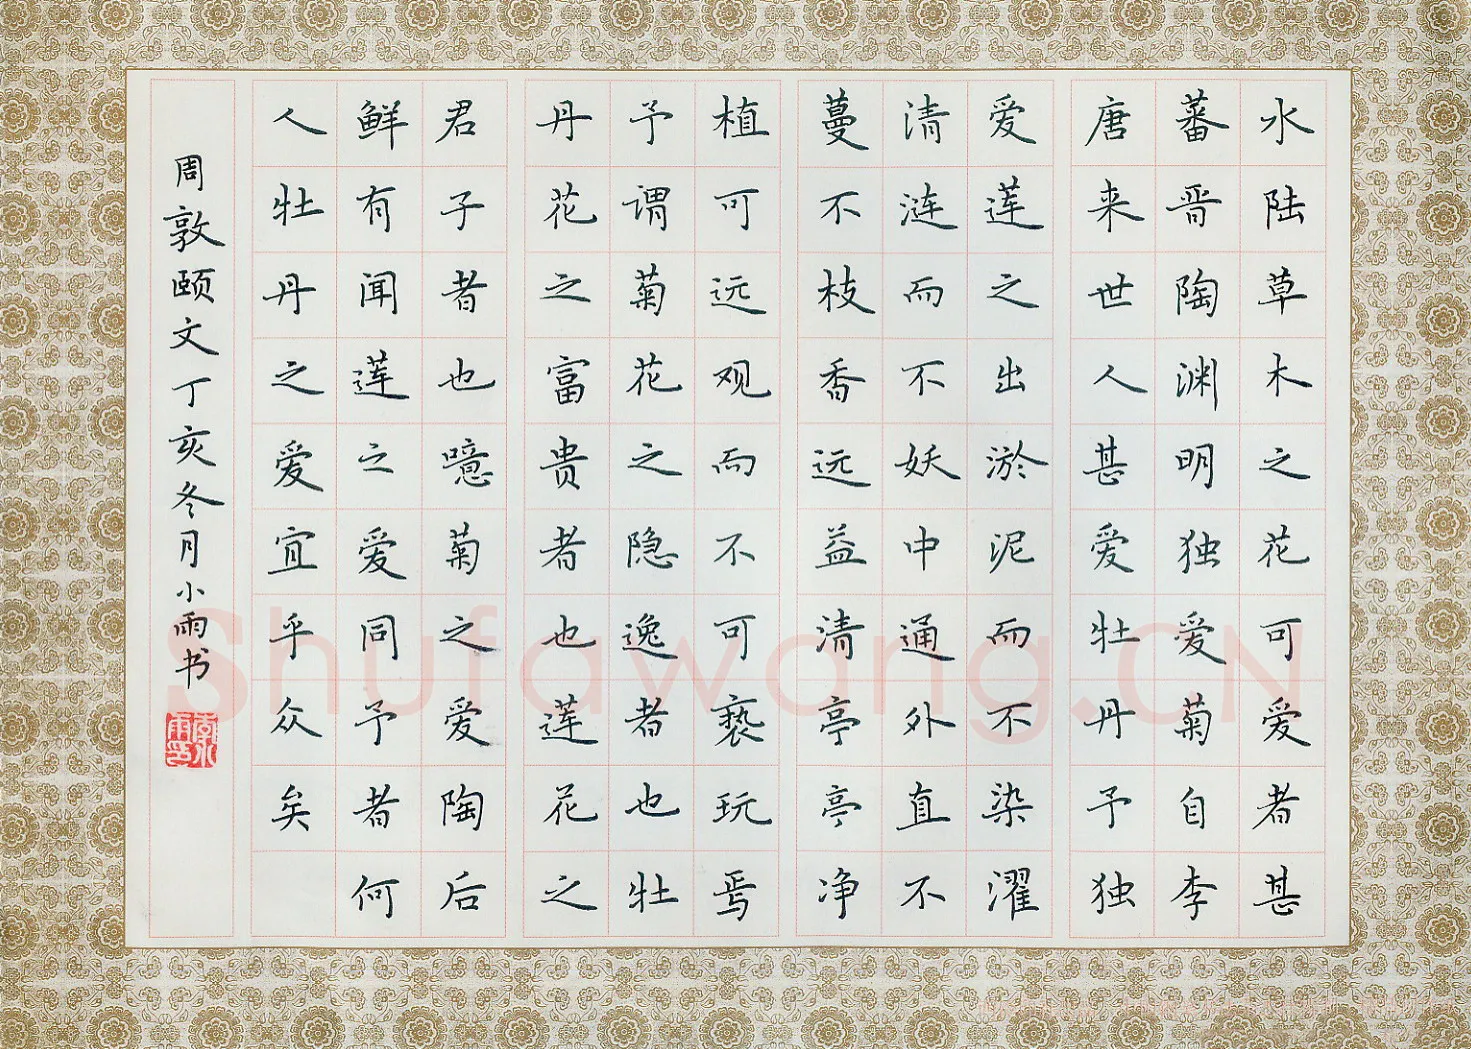 水陆草木之花可爱者甚
蕃晋陶渊明独爱菊自李
唐来世人甚爱牡丹予独
爱莲之出淤泥而不染濯
清涟而不妖中通外直不
蔓不枝香远益清亭亭净
植可远观而不可亵玩焉
予谓菊花之隐逸者也牡
丹花之富贵者也莲花之
君子者也噫菊之爱陶后
鲜有闻莲之爱同予者何
人牡丹之爱宜乎众矣
周敦颐文丁亥冬月小雨书
Shufawang.CN